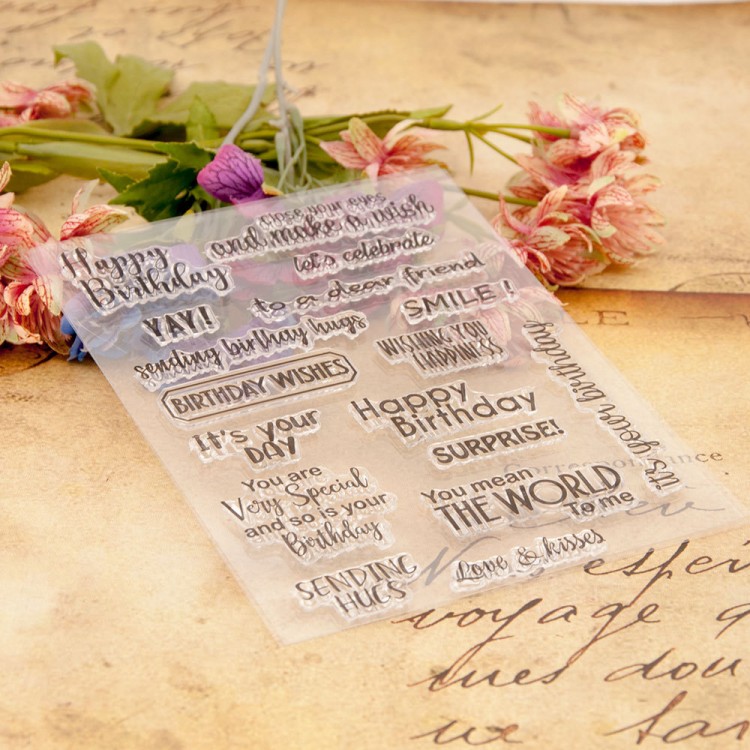 close your eyes
and make a wish
let's celebrate
Happy
Birthday
to a dear friend
SMILE !
YAY!
sending birthay hugs
WISHING YOU
HAPPINESS
it's your birthday
BIRTHDAY WISHES
Happy
Birthday
It's your
DAY
SURPRISE!
You are
Very Special
and so is your
Birthday
You mean
THE WORLD
To me
Love & kisses
SENDING
HUGS
voyage